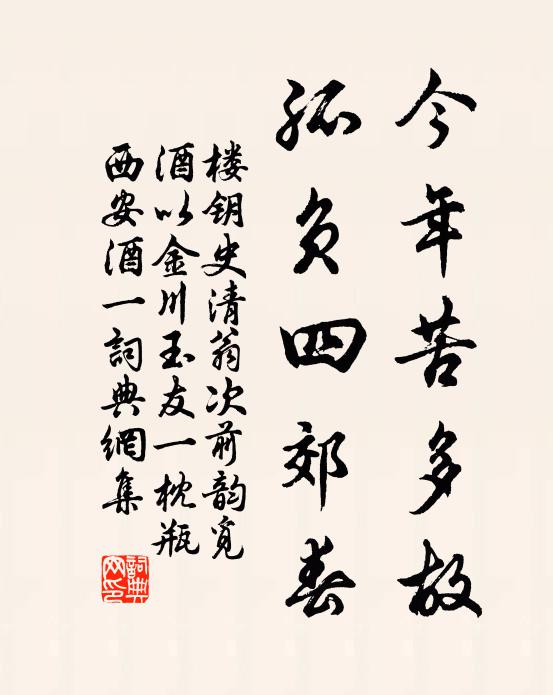 今年苦多故
孤负四郊春
楼钥史清翁次前韵觅
酒以金川玉友一枕瓶
西安酒一詞典網集
詞典网印